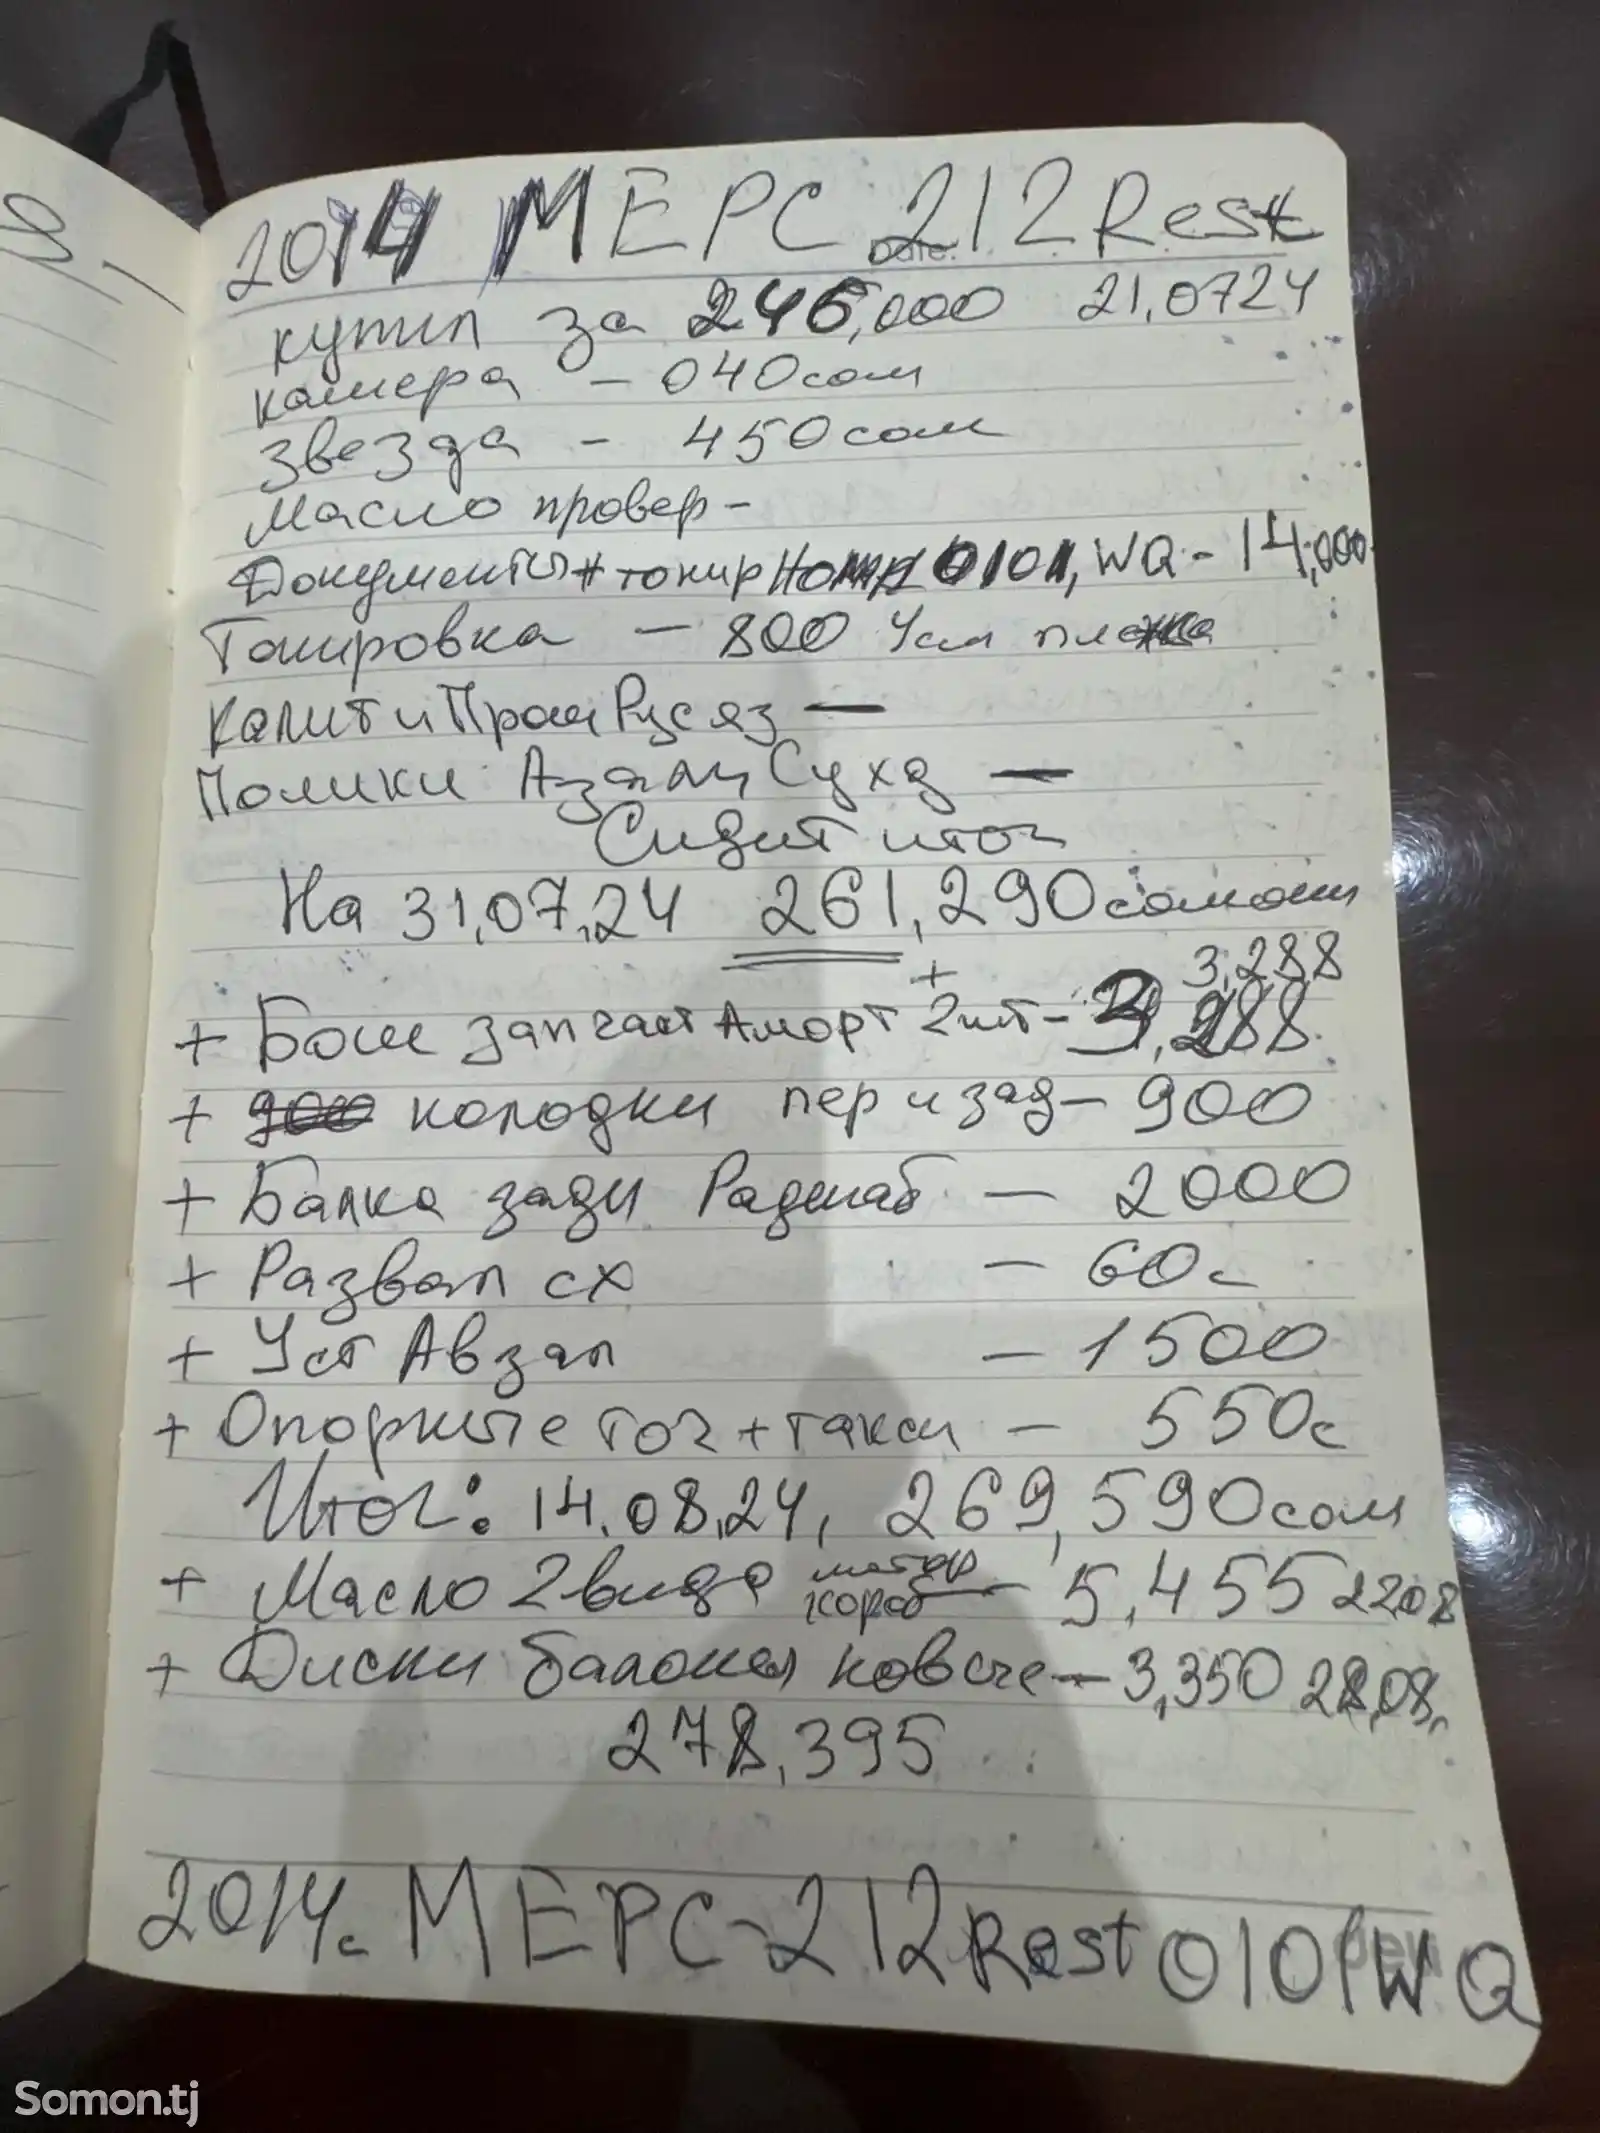 2014 МЕРС 212 Rest
Date:
купил за 246,000 21,0724
камера - 040сом
Звезда - 450сом
Масло провер -
Документы + тонир Номер 0101, WQ - 14,000
Тонировка - 800 Усл пленка
Калит и Прош Рус яз —
Полики Сухд —
Сидит итог
На 31,07,24 261,290 сомони
+ 3,288
+ Бош запчаст Аморт 2шт - 3,288
+ колодки пер и зад - 900
+ Балка зади Раджаб - 2000
+ Развал сх - 60с
+ Уст Авзап - 1500
+ Опорните точ + такси - 550с
Итог: 14.08,24, 269,590 сом
+ Масло 2 вида мотор короб - 5,455 2208
+ Диски балоны - 3,350 28,08,
278,395
2014г. МЕРС-212 Rest 0101WQ
Somon.tj